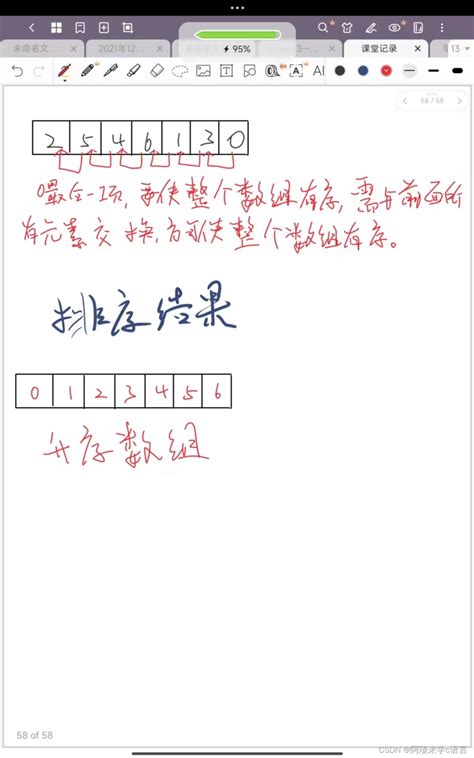 95%
未命名文...
2021年12...
3一...
课堂记录
13
AI
58 / 58
2 5 4 6 1 3 0
0最后一项,要使整个数组有序,需与前面所
有元素交换,方可使整个数组有序。
排序结果
0 1 2 3 4 5 6
升序数组
58 of 58
CSDN @阿瑾来学c语言